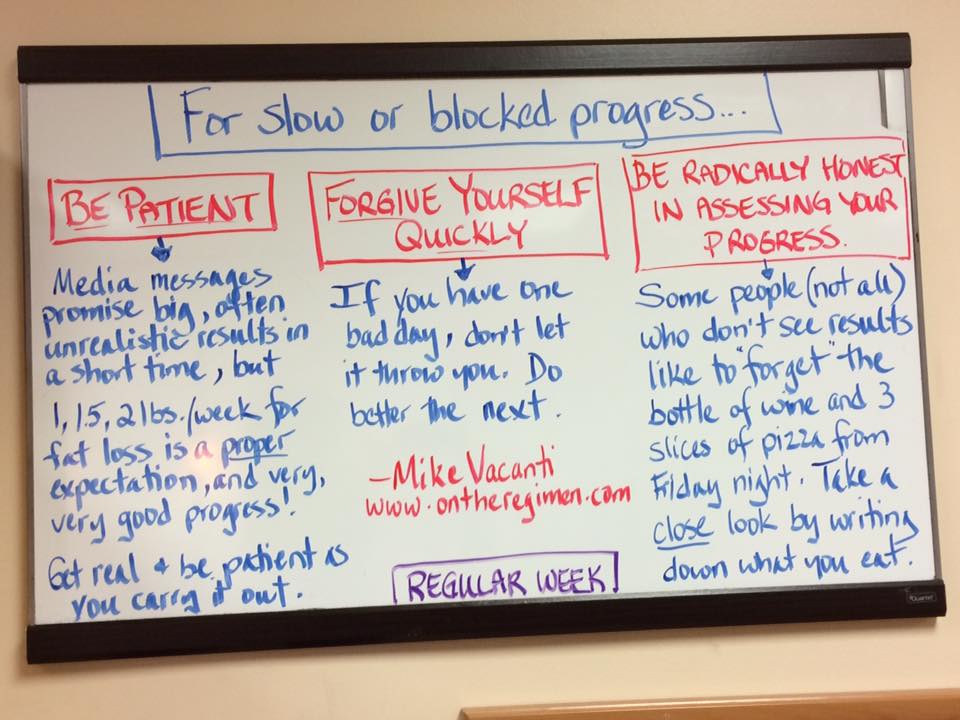 For slow or blocked progress...
BE PATIENT
Media messages
promise big, often
unrealistic results in
a short time, but
1, 1.5, 2 lbs./week for
fat loss is a proper
expectation, and very,
very good progress!
Get real + be patient as
you carry it out.
FORGIVE YOURSELF
QUICKLY
If you have one
bad day, don't let
it throw you. Do
better the next.
—Mike Vacanti
www.ontheregimen.com
REGULAR WEEK
BE RADICALLY HONEST
IN ASSESSING YOUR
PROGRESS.
Some people (not all)
who don't see results
like to "forget" the
bottle of wine and 3
slices of pizza from
Friday night. Take a
close look by writing
down what you eat.
Quartet